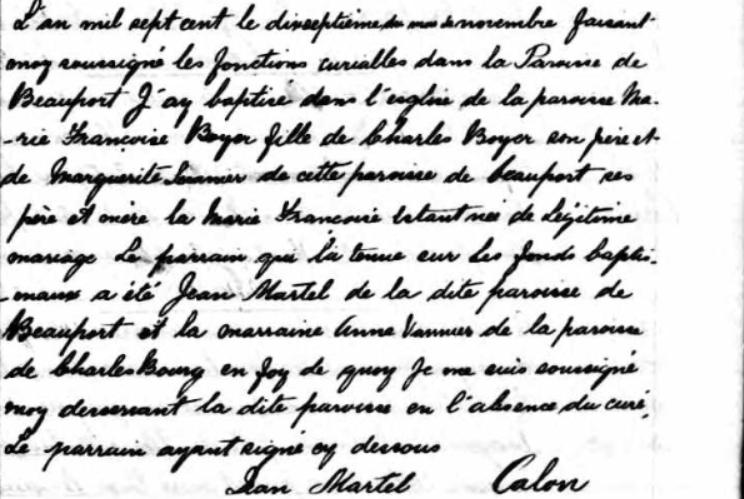 L'an mil sept cent le dixseptième du mois de novembre faisant
moy soussigné les fonctions curialles dans la Paroisse de
Beauport J'ay baptisé dans l'eglise de la paroisse Ma-
-rie Françoise Boyer fille de Charles Boyer son père et
de Marguerite de cette paroisse de beauport ses
père et mère la Marie Françoise Estant née de Légitime
mariage Le parrain qui l'a tenue sur Les fonds baptis-
-maux a été Jean Martel de la dite paroisse de
Beauport et la marraine Anne Vannier de la paroisse
de CharlesBourg en foy de quoy Je me suis soussigné
moy desservant la dite paroisse en l'absence du curé,
Le parrain ayant signé cy dessous
Jean Martel Calon